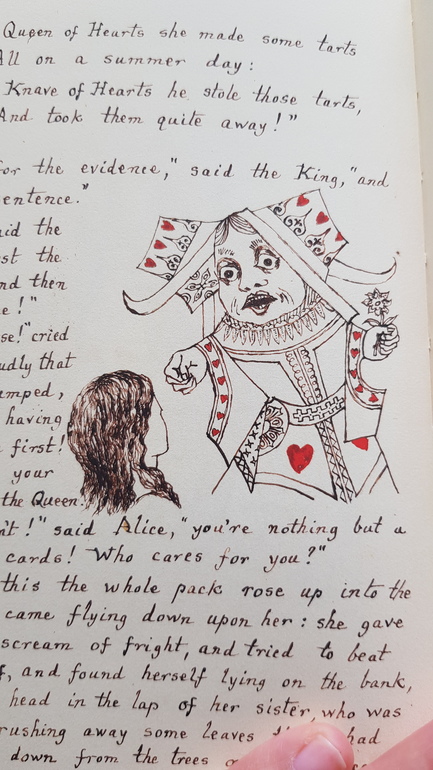 Queen of Hearts she made some tarts
All on a summer day:
Knave of Hearts he stole those tarts,
And took them quite away!"
for the evidence," said the King, "and
sentence."
said the
the
and then
!"
cried
loudly that
jumped,
having
first!
your
the Queen.
!" said Alice, "you're nothing but a
cards! Who cares for you?"
this the whole pack rose up into the
came flying down upon her: she gave
scream of fright, and tried to beat
and found herself lying on the bank,
head in the lap of her sister, who was
brushing away some leaves had
down from the trees